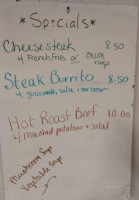 *Specials*
Cheesesteak 8.50
w/ French Fries or onion
rings
Steak Burrito 8.50
w/ guacamole, salsa + sour cream
Hot Roast Beef 10.00
w/ mashed potatoes + salad
Mushroom Soup
Vegetable Soup